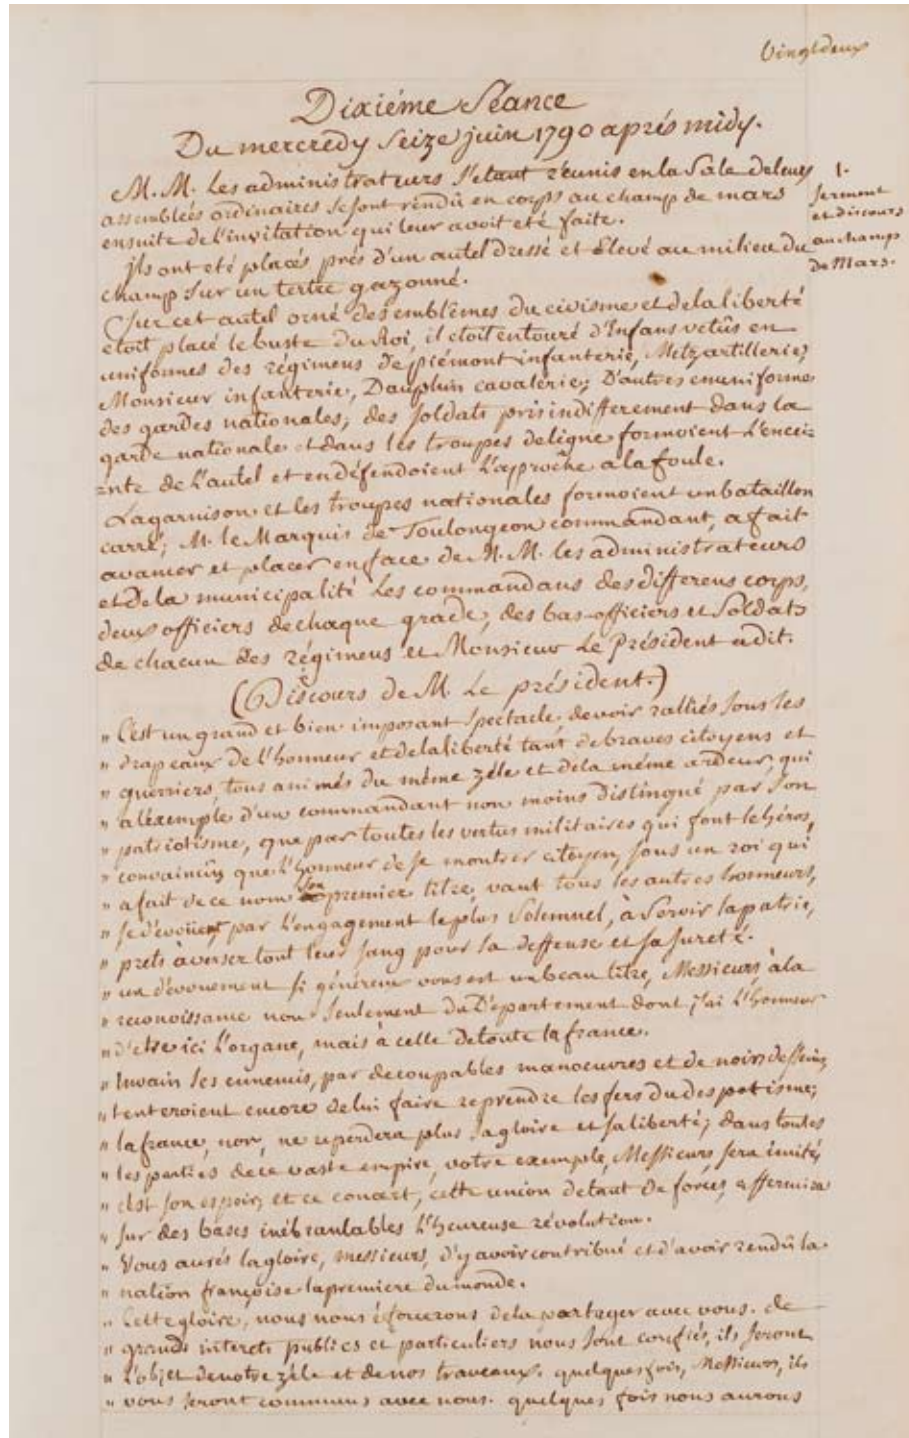 Vingtdeux
Dixiéme Séance
Du mercredy Seize juin 1790 aprés midy.
M. M. Les administrateurs S'etant réunis en la Sale de leurs
assemblées ordinaires se sont rendû en corps au champ de mars
ensuite de l'invitation qui leur avoit eté faite.
1.
Serment
et discours
au champ
de Mars.
ils ont eté placés prés d'un autel dressé et élevé au milieu du
champ sur un tertre gazonné.
Sur cet autel orné des emblêmes du civisme et de la liberté
etoit placé le buste du Roi, il etoit entouré d'Infans vetûs en
uniformes des régimens de piémont infanterie, Metz artillerie,
Monsieur infanterie, Dauphin cavalerie; D'autres en uniforme
des gardes nationales; des soldats pris indifferement dans la
garde nationale et dans les troupes de ligne formoient L'encei=
=nte de L'autel et en défendoient L'approche a la foule.
La garnison et les troupes nationales formoient un bataillon
carré; M. le Marquis de Toulongeon commandant, a fait
avancer et placer en face de M. M. les administrateurs
et de la municipalité Les commandans des differens corps,
deux officiers de chaque grade, des bas officiers et Soldats
de chacun des régimens et Monsieur Le Président a dit.
(Discours de M. Le président.)
" C'est un grand et bien imposant Spectacle de voir ralliés sous les
" drapeaux de l'honneur et de la liberté tant de braves citoyens et
" guerriers tous animés du même zéle et de la même ardeur, qui
" a l'éxemple d'un commandant non moins distingué par Son
" patriotisme, que par toutes les vertus militaires qui font le héros,
" convaincûs que l'honneur de se montrer citoyen, sous un roi qui
" a fait de ce nom son premier titre, vaut tous les autres honneurs,
" se dévouent par L'engagement le plus Solemnel, à Servir la patrie,
" prets à verser tout leur sang pour sa deffense et sa sureté.
" un dévouement si généreux vous est un beau titre, Messieurs, à la
" reconoissance non Seulement du Département dont j'ai L'honneur
" d'etre ici L'organe, mais à celle de toute la france.
" Envain ses ennemis, par de coupables manoeuvres et de noirs desseins,
" tenteroient encore de lui faire reprendre les fers du despotisme;
" la france, non, ne reperdera plus sa gloire et sa liberté; dans toutes
" les parties de ce vaste empire, votre exemple, Messieurs, sera imité,
" c'est son espoir, et ce concert, cette union de tant de forces, affermira
" sur des bases inébranlables L'heureuse révolution.
" Vous aurés la gloire, messieurs, d'y avoir contribué et d'avoir rendû la
" nation françoise la premiere du monde.
" Cette gloire, nous nous éforcerons de la partager avec vous. de
" grands interets publics et particuliers nous sont confiés, ils seront
" L'objet de notre zéle et de nos traveaux. quelques fois, Messieurs, ils
" vous seront communs avec nous. quelques fois nous aurons